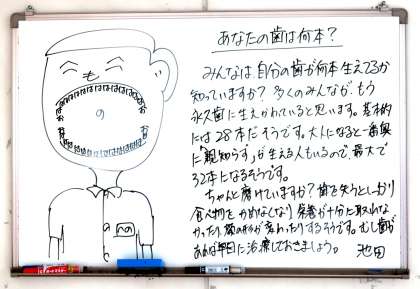 あなたの歯は何本？
みんなは、自分の歯が何本生えてるか
知っていますか？多くのみんなが、もう
永久歯に生えかわっていると思います。基本的
には28本だそうです。大人になると一番奥
に「親知らず」が生える人もいるので、最大で
32本になるそうです。
ちゃんと磨けていますか？歯を失うとしっかり
食べ物をかめなくなり、栄養が十分に取れな
かったり、顔の形が変わったりするそうです。むし歯が
あれば早目に治療しておきましょう。
池田
も
の
への